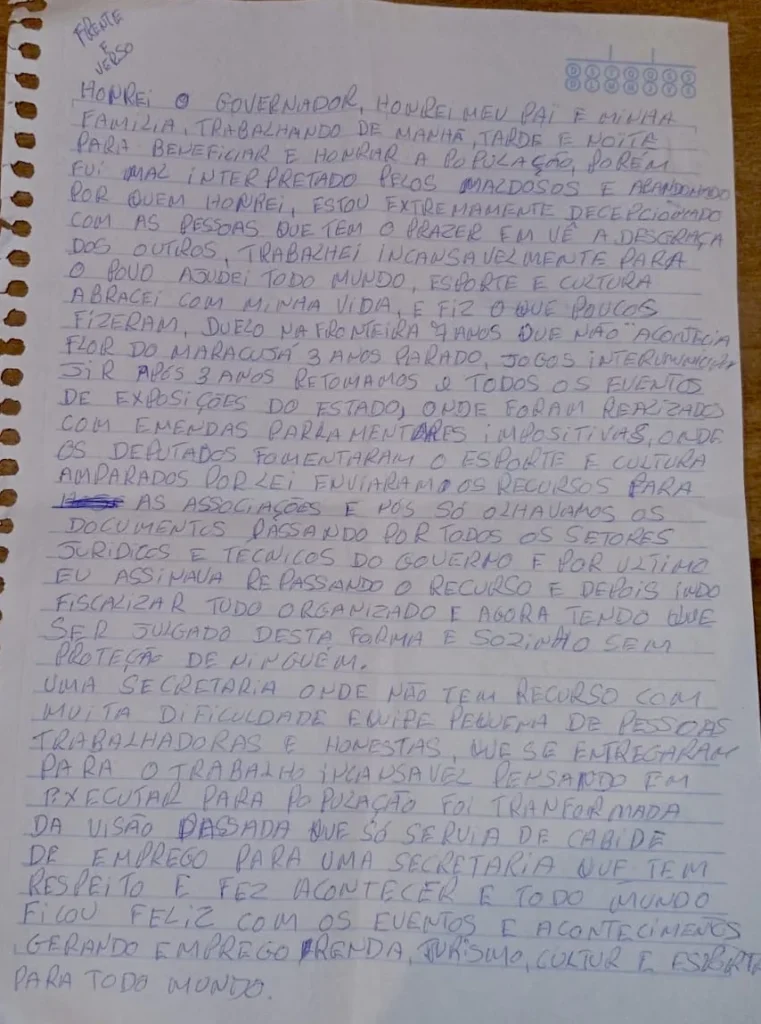 FRENTE
E
VERSO
D S T Q Q S S
D L M M J F S
HONREI O GOVERNADOR, HONREI MEU PAI E MINHA
FAMILIA, TRABALHANDO DE MANHÃ, TARDE E NOITE
PARA BENEFICIAR E HONRAR A POPULAÇÃO, PORÉM
FUI MAL INTERPRETADO PELOS MALDOSOS E ABANDONADO
POR QUEM HONREI, ESTOU EXTREMAMENTE DECEPCIONADO
COM AS PESSOAS QUE TEM O PRAZER EM VÊ A DESGRAÇA
DOS OUTROS, TRABALHEI INCANSAVELMENTE PARA
O POVO AJUDEI TODO MUNDO, ESPORTE E CULTURA
ABRACEI COM MINHA VIDA, E FIZ O QUE POUCOS
FIZERAM, DUELO NA FRONTEIRA 7 ANOS QUE NÃO ACONTECIA
FLOR DO MARACUJÁ 3 ANOS PARADO, JOGOS
JIR APÓS 3 ANOS RETOMAMOS e TODOS OS EVENTOS
DE EXPOSIÇÕES DO ESTADO, ONDE FORAM REALIZADOS
COM EMENDAS PARLAMENTARES IMPOSITIVAS, ONDE
OS DEPUTADOS FOMENTARAM O ESPORTE E CULTURA
AMPARADOS POR LEI ENVIARAM OS RECURSOS PARA
AS ASSOCIAÇÕES E NÓS SÓ OLHAVAMOS OS
DOCUMENTOS PASSANDO POR TODOS OS SETORES
JURÍDICOS E TÉCNICOS DO GOVERNO E POR ULTIMO
EU ASSINAVA REPASSANDO O RECURSO E DEPOIS INDO
FISCALIZAR TUDO ORGANIZADO E AGORA TENDO QUE
SER JULGADO DESTA FORMA E SOZINHO SEM
PROTEÇÃO DE NINGUÉM.
UMA SECRETARIA ONDE NÃO TEM RECURSO COM
MUITA DIFICULDADE EQUIPE PEQUENA DE PESSOAS
TRABALHADORAS E HONESTAS, QUE SE ENTREGARAM
PARA O TRABALHO INCANSAVEL PENSANDO EM
EXECUTAR PARA POPULAÇÃO FOI TRANFORMADA
DA VISÃO PASSADA QUE SÓ SERVIA DE CABIDE
DE EMPREGO PARA UMA SECRETARIA QUE TEM
RESPEITO E FEZ ACONTECER E TODO MUNDO
FICOU FELIZ COM OS EVENTOS E ACONTECIMENTOS
GERANDO EMPREGO RENDA, TURISMO, CULTUR E ESPORTE
PARA TODO MUNDO.